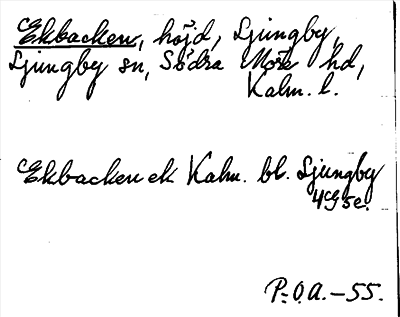 Ekbacken, höjd, Ljungby,
Ljungby sn, Södra Möre hd,
Kalm. l.
Ekbacken ek Kalm. bl. Ljungby
4G se.
P.O.A.-55.